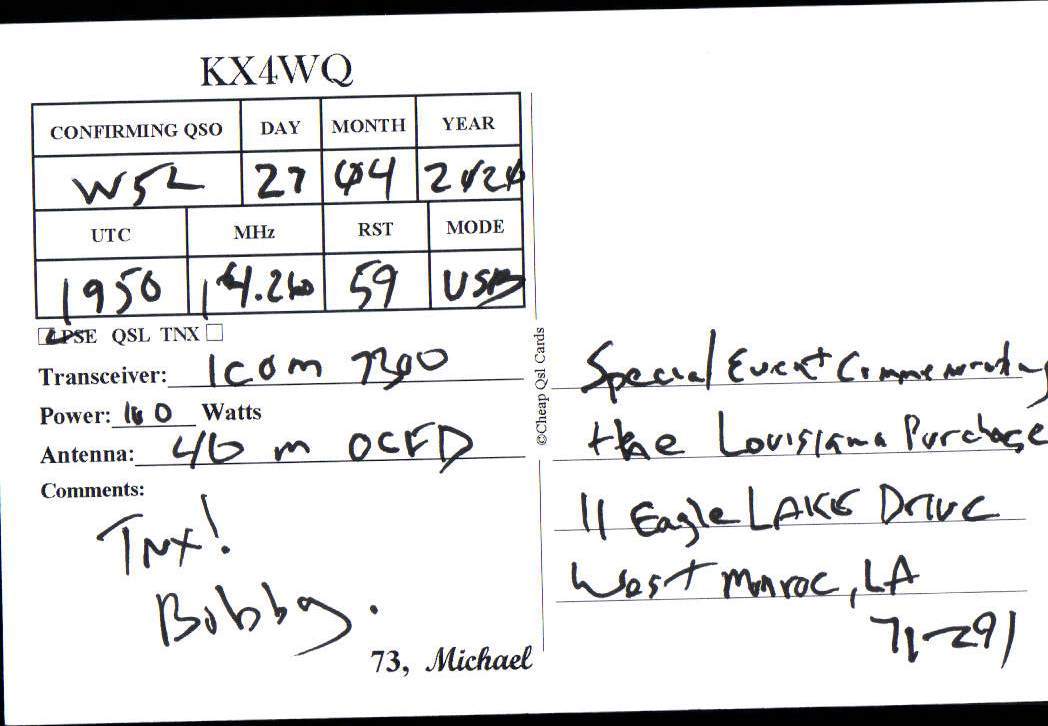 KX4WQ
CONFIRMING QSO DAY MONTH YEAR
W5L 27 04 2020
UTC MHz RST MODE
1950 14.260 59 USB
PSE QSL TNX
Transceiver: Icom 7300
Power: 100 Watts
Antenna: 40 m OCFD
Comments:
TNX!
Bobby.
73, Michael
©Cheap Qsl Cards
Special Event Commemorating
the Louisiana Purchase
11 Eagle LAKE Drive
West Monroe, LA
71291